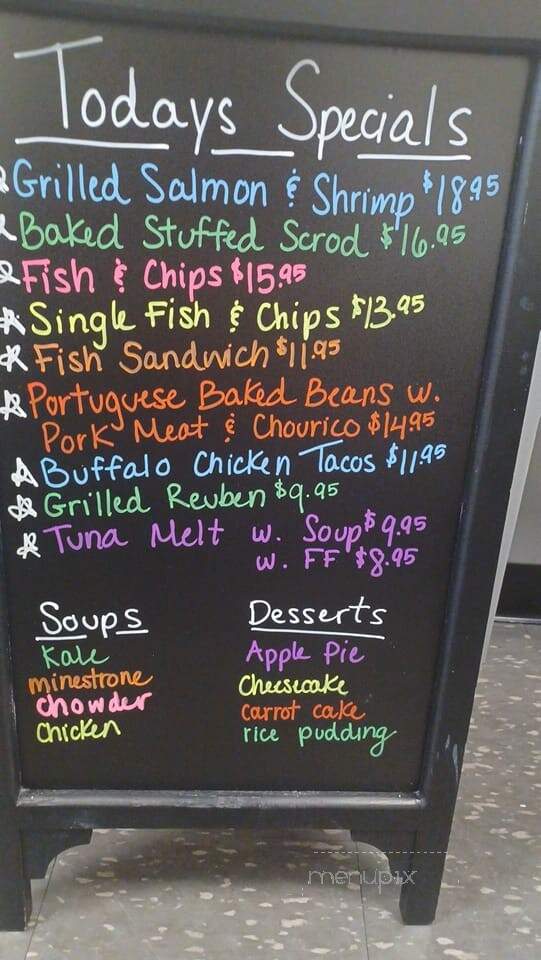 Todays Specials
Grilled Salmon & Shrimp $18.95
Baked Stuffed Scrod $16.95
Fish & Chips $15.95
Single Fish & Chips $13.95
Fish Sandwich $11.95
Portuguese Baked Beans w.
Pork Meat & Chourico $14.95
Buffalo Chicken Tacos $11.95
Grilled Reuben $9.95
Tuna Melt w. Soup $9.95
w. FF $8.95
Soups
Kale
minestrone
chowder
chicken
Desserts
Apple Pie
Cheesecake
carrot cake
rice pudding
menupix